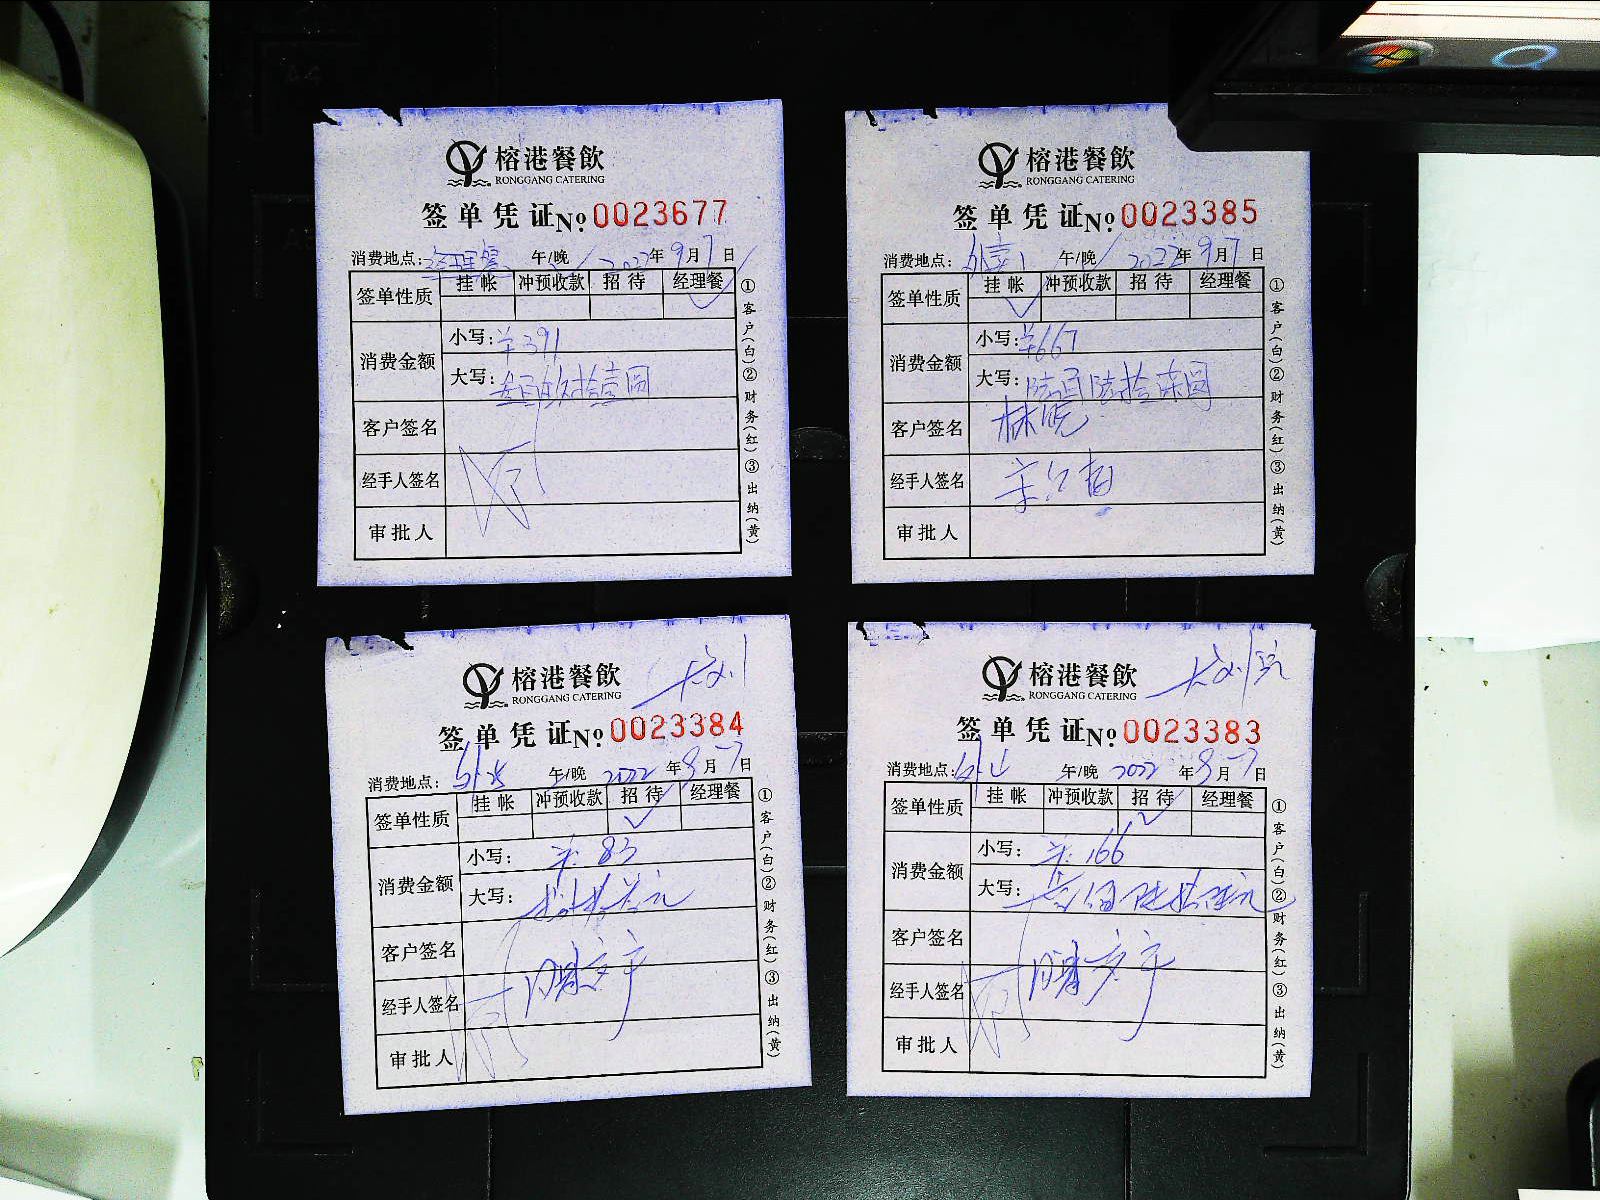 榕港餐飲
RONGGANG CATERING
签单凭证No.0023677
消费地点: 经理餐 午/晚 2022年9月7日
签单性质 挂帐 冲预收款 招待 经理餐
消费金额 小写:¥391
大写:叁百玖拾壹圆
客户签名
经手人签名
审批人
①客户(白)②财务(红)③出纳(黄)
榕港餐飲
RONGGANG CATERING
签单凭证No.0023385
消费地点: 午/晚 2022年9月7日
签单性质 挂帐 冲预收款 招待 经理餐
消费金额 小写:¥667
大写:陆百陆拾柒圆
客户签名 林晓
经手人签名
审批人
①客户(白)②财务(红)③出纳(黄)
榕港餐飲
RONGGANG CATERING
签单凭证No.0023384
消费地点: 午/晚 2022年9月7日
签单性质 挂帐 冲预收款 招待 经理餐
消费金额 小写: ¥:83
大写: 捌拾叁元
客户签名
经手人签名
审批人
①客户(白)②财务(红)③出纳(黄)
榕港餐飲
RONGGANG CATERING
签单凭证No.0023383
消费地点: 午/晚 2022年9月7日
签单性质 挂帐 冲预收款 招待 经理餐
消费金额 小写: ¥:166
大写: 壹佰陆拾陆元
客户签名
经手人签名
审批人
①客户(白)②财务(红)③出纳(黄)